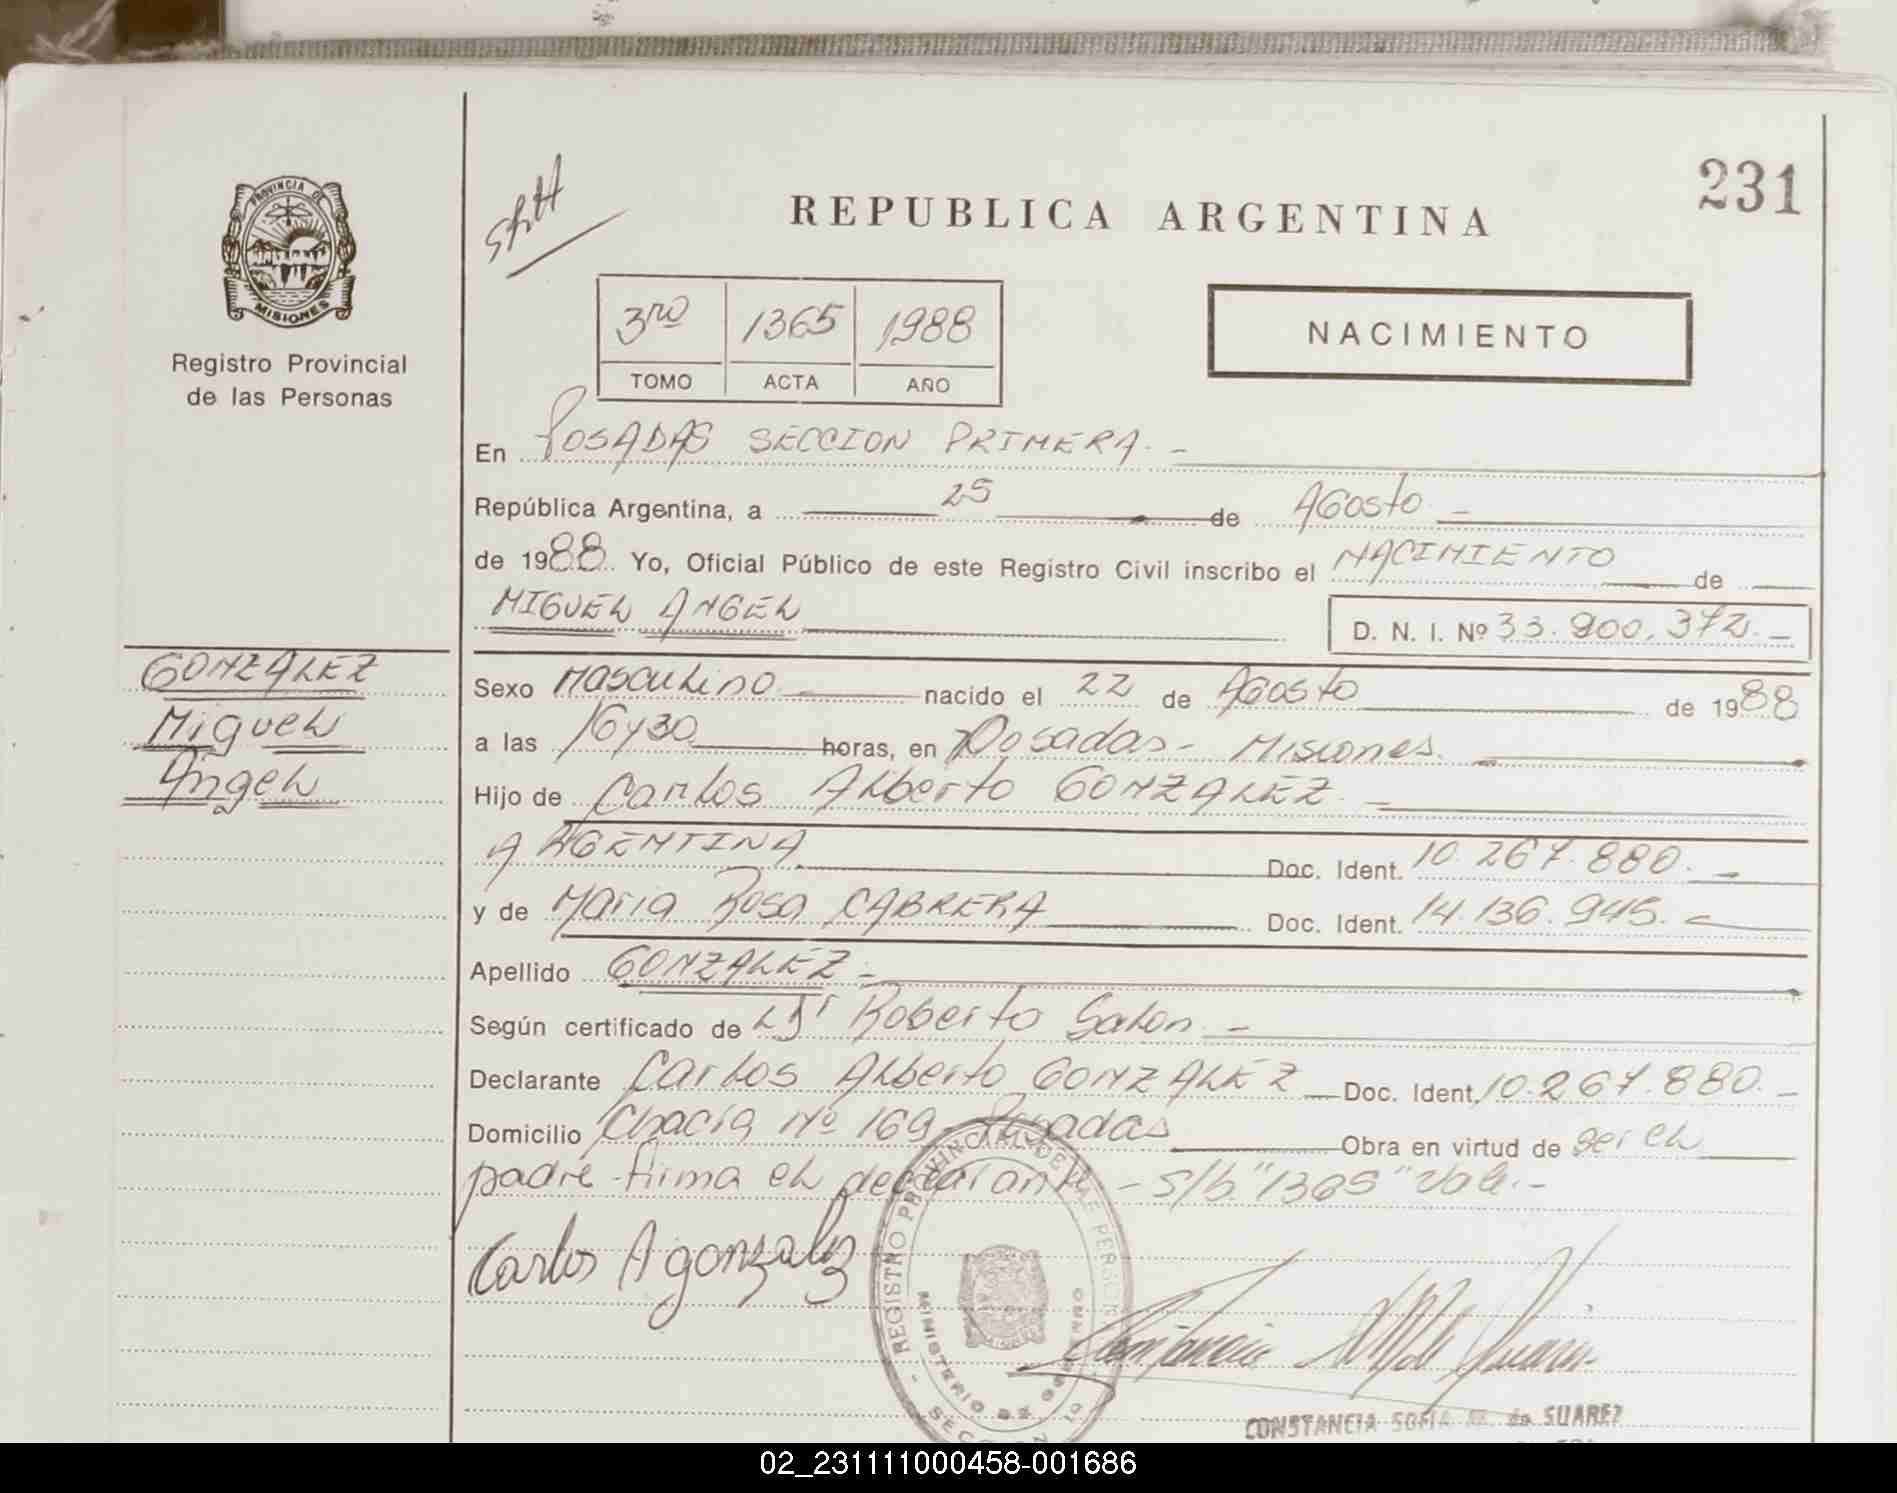 231
PROVINCIA DE
MISIONES
Registro Provincial
de las Personas
REPUBLICA ARGENTINA
3ro 1365 1988
TOMO ACTA AÑO
NACIMIENTO
En POSADAS SECCION PRIMERA.-
República Argentina, a 25 de AGosto -
de 1988. Yo, Oficial Público de este Registro Civil inscribo el NACIMIENTO de
MIGUEL ANGEL D. N. I. Nº 33.900.372.-
GONZALEZ
Miguel
Angel
Sexo Masculino nacido el 22 de AGosto de 1988
a las 16y30 horas, en Posadas- Misiones.
Hijo de Carlos Alberto GONZALEZ.-
ARGENTINA Doc. Ident. 10.267.880.-
y de Maria Rosa CABRERA Doc. Ident. 14.136.945.-
Apellido GONZALEZ.-
Según certificado de Roberto Galon.-
Declarante Carlos Alberto GONZALEZ Doc. Ident. 10.267.880.-
Domicilio Chacra Nº 169- Posadas Obra en virtud de ser el
padre-firma el declarante- s/b "1365" Vale.-
Carlos A gonzalez
REGISTRO PROVINCIAL DE LAS PERSONAS
MINISTERIO DE GOBIERNO
CONSTANCIA SOFIA de SUAREZ
02_231111000458-001686